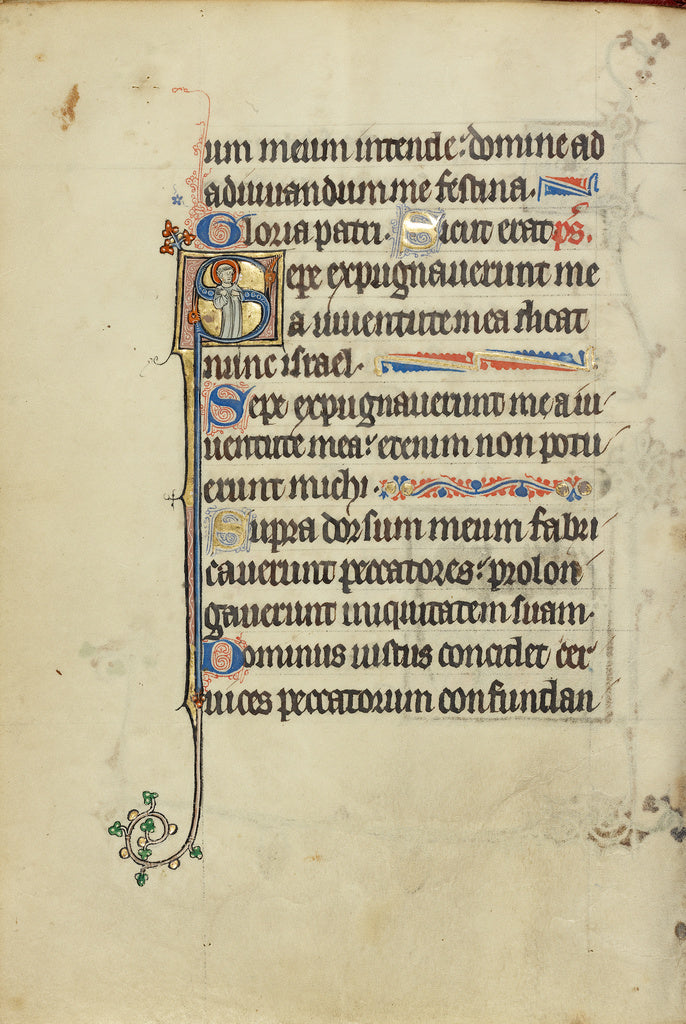 um meum intende: domine ad
adiuuandum me festina.
Gloria patri. Sicut erat ps.
Sepe expugnauerunt me
a iuuentute mea dicat
nunc israel.
Sepe expugnauerunt me a iu
uentute mea: etenim non potu
erunt michi.
Supra dorsum meum fabri
cauerunt peccatores: prolon
gauerunt iniquitatem suam.
Dominus iustus concidet cer
uices peccatorum confundan